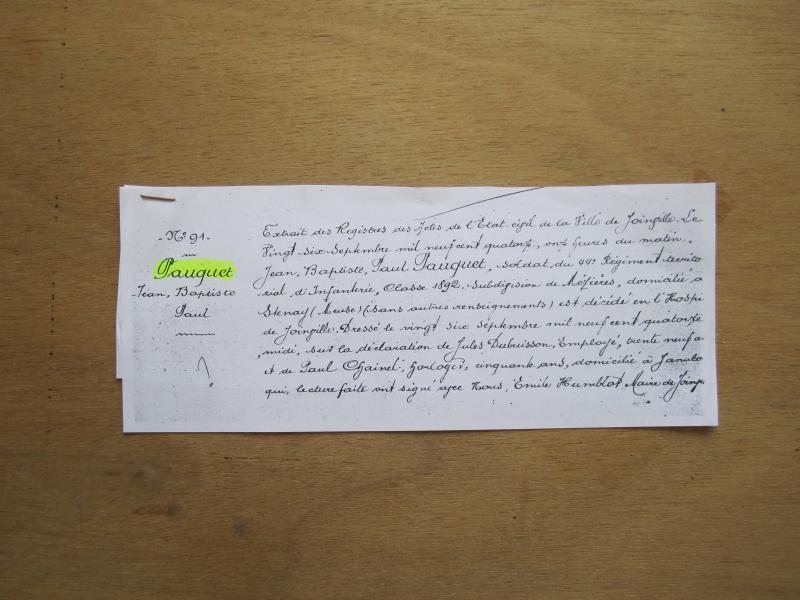 - No 91 -
Pauquet
Jean, Baptiste
Paul
Extrait des Registres des Actes de l'Etat-civil de la Ville de Joinville. Le
Vingt-six Septembre mil neuf cent quatorze, onze heures du matin,
Jean, Baptiste, Paul Pauquet, soldat du 44e Régiment territo
rial d'Infanterie, Classe 1892, Subdivision de Mézières, domicilié à
Stenay (Meuse) (sans autres renseignements) est décédé en l'Hospi
de Joinville. Dressé le vingt six septembre mil neuf cent quatorze
midi, sur la déclaration de Jules Dubuisson, Employé, trente neuf a
et de Paul Chainel, horloger, cinquante ans, domicilié à
qui, lecture faite ont signé avec Nous, Emile Humblot Maire de Joinvi